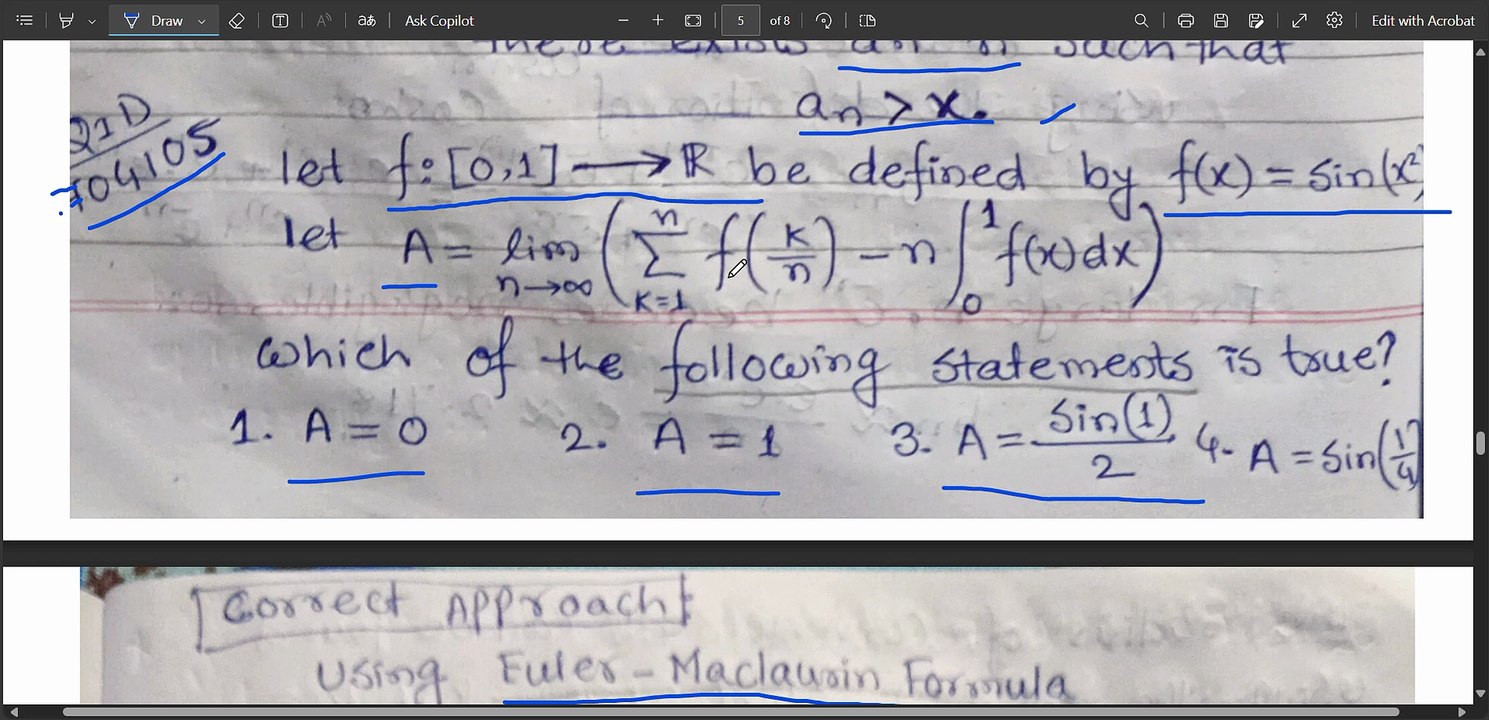 Draw
aあ
Ask Copilot
5
of 8
Edit with Acrobat
such that
an > x.
21D
104105
let f: [0,1] → ℝ be defined by f(x) = sin(x²)
let A = lim n→∞ ( Σ k=1 n f(k/n) − n ∫ 0 1 f(x) dx )
which of the following statements is true?
1. A = 0 2. A = 1 3. A = sin(1)/2 4. A = sin(1/4)
Correct Approach
using Euler-Maclaurin Formula